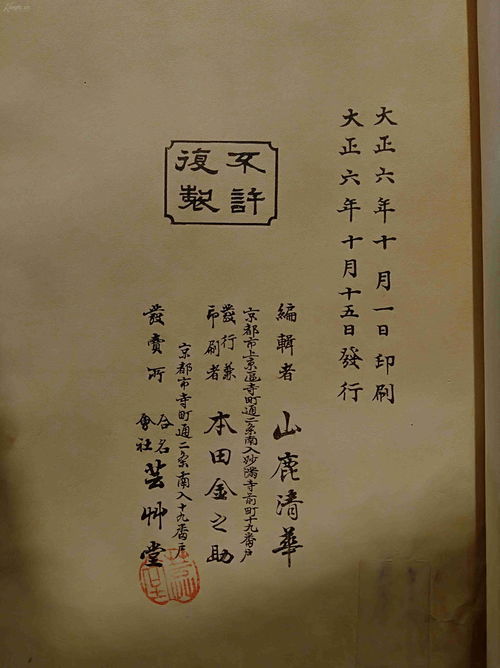 大正六年十月一日印刷
大正六年十月十五日發行
不許
復製
編輯者 山鹿清華
京都市上京區寺町通二条南入妙満寺前町十九番戸
發行兼
印刷者 本田金之助
京都市寺町通二条南入十九番戸
發賣所 合名會社 芸艸堂